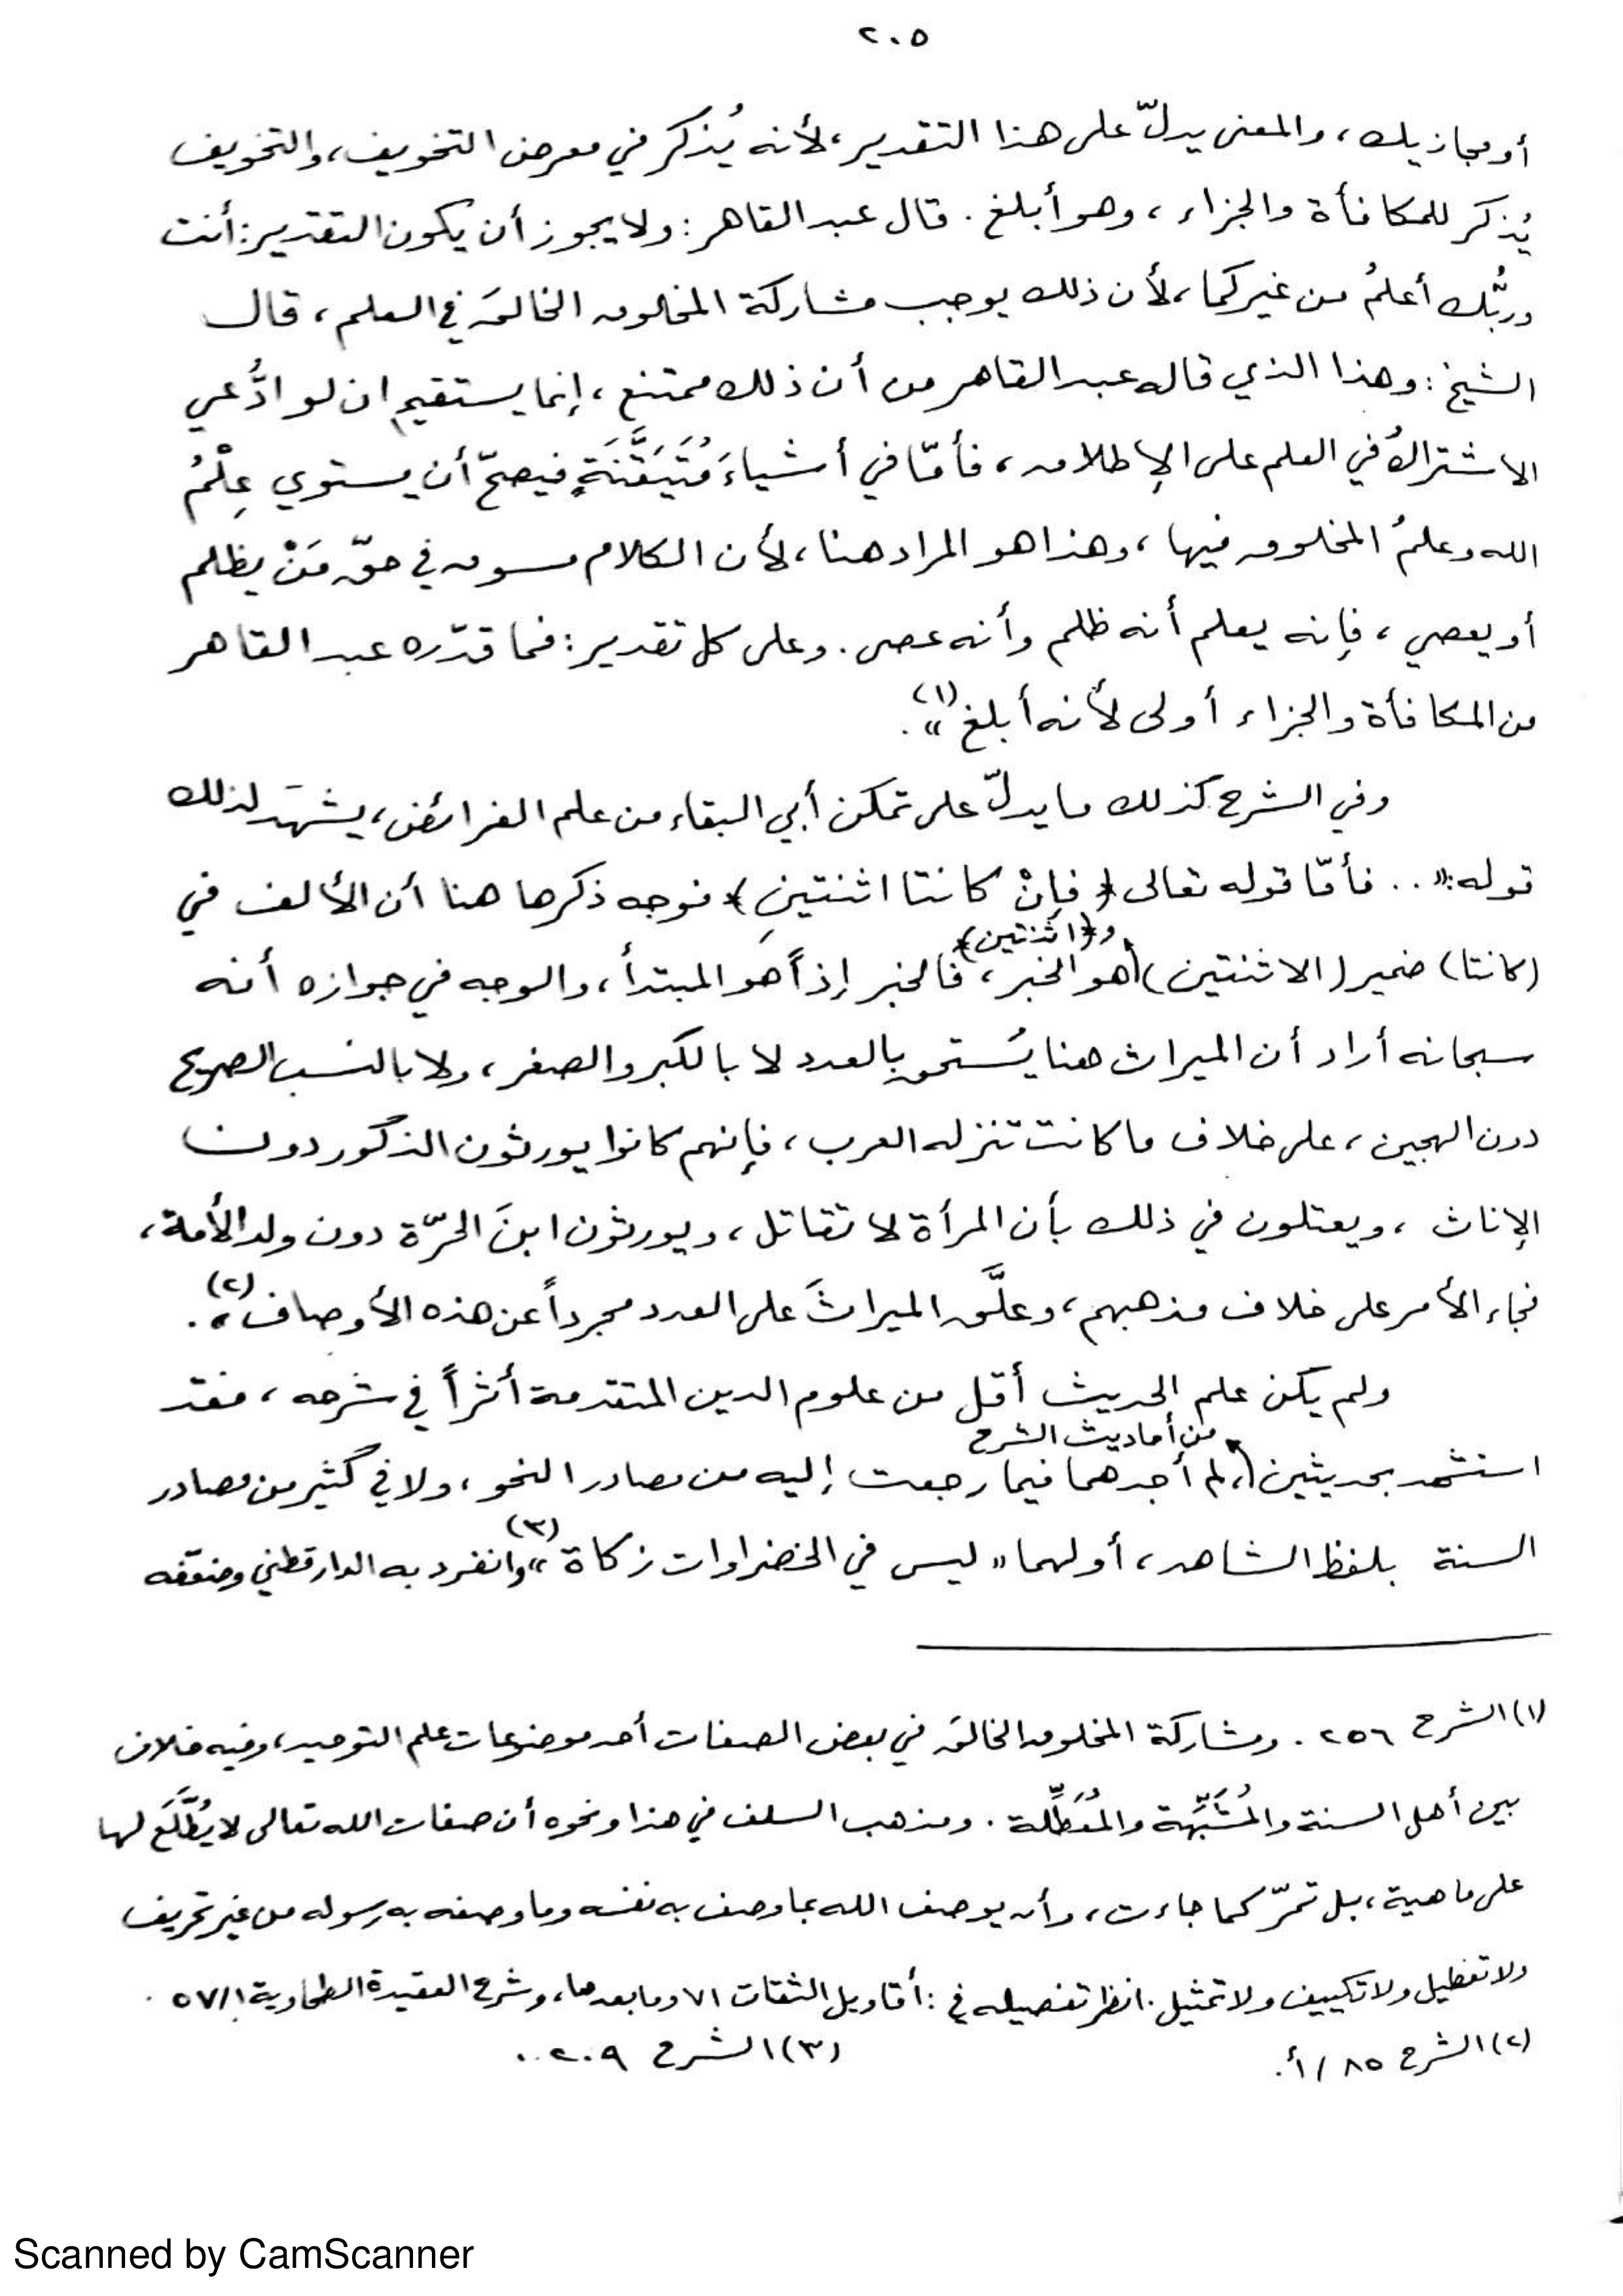 ٢٠٥
أو مجازيك، والمعنى يدلّ على هذا التقدير، لأنه يُذكر في معرض التخويف، والتخويف
يُذكر للمكافأة والجزاء، وهو أبلغ. قال عبد القاهر: ولا يجوز أن يكون التقدير: أنت
وربُّك أعلمُ من غيركما، لأن ذلك يوجب مشاركة المخلوق الخالقَ في العلم، قال
الشيخ: وهذا الذي قاله عبد القاهر من أن ذلك ممتنع، إنما يستقيم ان لو ادُّعي
الاشتراكُ في العلم على الإطلاق، فأمّا في أشياءَ مُتَيَقَّنَةٍ فيصحّ أن يستوي عِلْمُ
الله وعلمُ المخلوق فيها، وهذا هو المراد هنا، لأن الكلام مسوق في حقّ مَنْ يظلم
أو يعصي، فإنه يعلم أنه ظلم وأنه عصى. وعلى كل تقدير: فما قدّره عبد القاهر
من المكافأة والجزاء أولى لأنه أبلغ»(١).
وفي الشرح كذلك ما يدلّ على تمكن أبي البقاء من علم الفرائض، يشهَد لذلك
قوله: «.. فأمّا قوله تعالى ﴿فإنْ كانتا اثنتينِ﴾ فوجه ذكرها هنا أن الألف في
(كانتا) ضمير (الاثنتين) و﴿اثنتين﴾ هو الخبر، فالخبر إذاً هو المبتدأ، والوجه في جوازه أنه
سبحانه أراد أن الميراث هنا يُستحق بالعدد لا بالكبر والصغر، ولا بالنسب الصريح
دون الهجين، على خلاف ما كانت تنزله العرب، فإنهم كانوا يورثون الذكور دون
الإناث، ويعتلون في ذلك بأن المرأة لا تقاتل، ويورثون ابنَ الحرّة دون ولد الأمة،
فجاء الأمر على خلاف مذهبهم، وعلَّق الميراثَ على العدد مجرداً عن هذه الأوصاف»(٢).
ولم يكن علم الحديث أقل من علوم الدين المتقدمة أثراً في شرحه، فقد
استشهد بحديثين من أحاديث الشرح، لم أجدهما فيما رجعت إليه من مصادر النحو، ولا في كثير من مصادر
السنة بلفظ الشاهد، أولهما «ليس في الخضراوات زكاة»(٣) وانفرد به الدارقطني وضعّفه
(١) الشرح ٢٥٦. ومشاركة المخلوق الخالقَ في بعض الصفات أحد موضوعات علم التوحيد، وفيه خلاف
بين أهل السنة والمُشَبِّهة والمُعَطِّلة. ومذهب السلف في هذا ونحوه أن صفات الله تعالى لا يُطَّلَع لها
على ماهية، بل تمرّ كما جاءت، وأن يوصف الله بما وصف به نفسه وما وصفه به رسوله من غير تحريف
ولا تعطيل ولا تكييف ولا تمثيل. انظر تفصيله في: أقاويل الثقات ٧١ وما بعدها، وشرح العقيدة الطحاوية ١/٥٧.
(٢) الشرح ٨٥/أ.
(٣) الشرح ٢٠٩.
Scanned by CamScanner